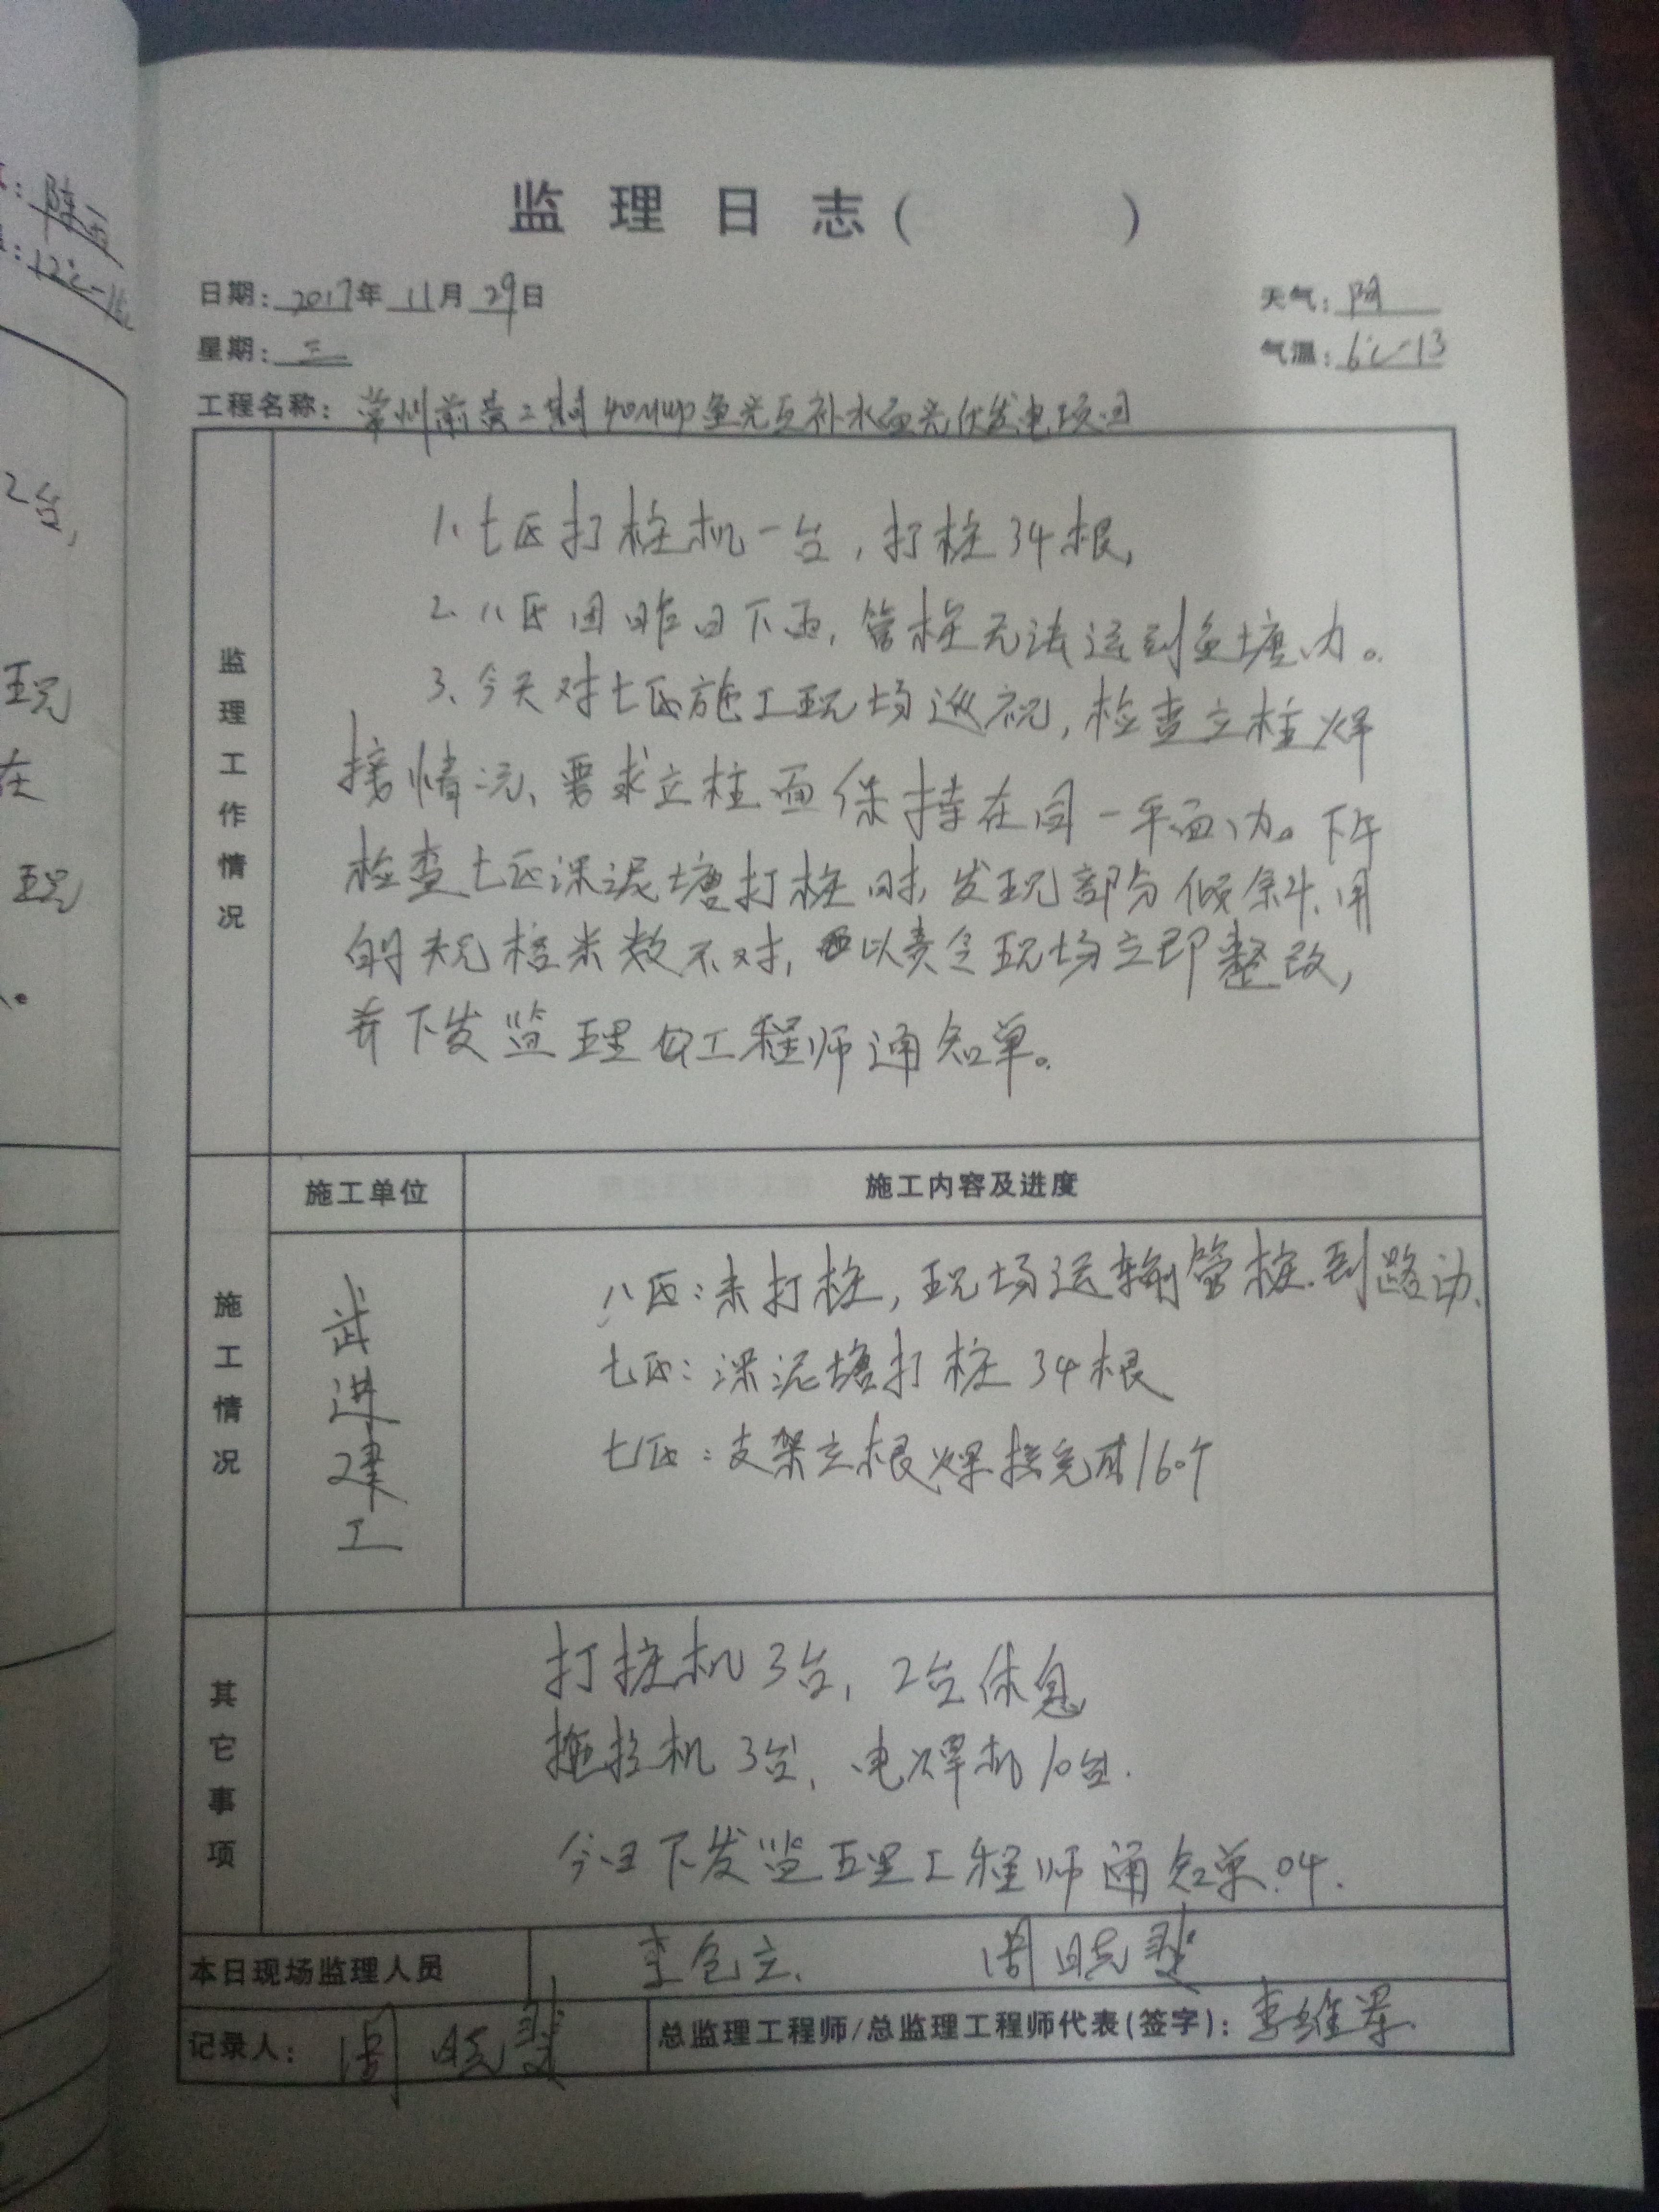 监理日志( )
日期：2017年11月29日
天气：阴
星期：三
气温：6℃-13
工程名称：常州前黄二期40MWP鱼光互补水面光伏发电项目
监理工作情况
1、七区打桩机一台，打桩34根，
2、八区因昨日下雨，管桩无法运到鱼塘内。
3、今天对七区施工现场巡视，检查立柱焊
接情况、要求立柱面保持在同一平面内。下午
检查七区深泥塘打桩时，发现部分倾斜、用
的规格米数不对，以责令现场立即整改，
并下发监理工程师通知单。
施工情况
施工单位
施工内容及进度
武进建工
八区：未打桩，现场运输管桩到路边、
七区：深泥塘打桩34根
七区：支架立根焊接完成160个
其它事项
打桩机3台，2台休息
拖拉机3台，电焊机10台.
今日下发监理工程师通知单.04.
本日现场监理人员
李包立、周晓斐
记录人：周晓斐
总监理工程师/总监理工程师代表(签字)：李维军
2台，
现
在
现